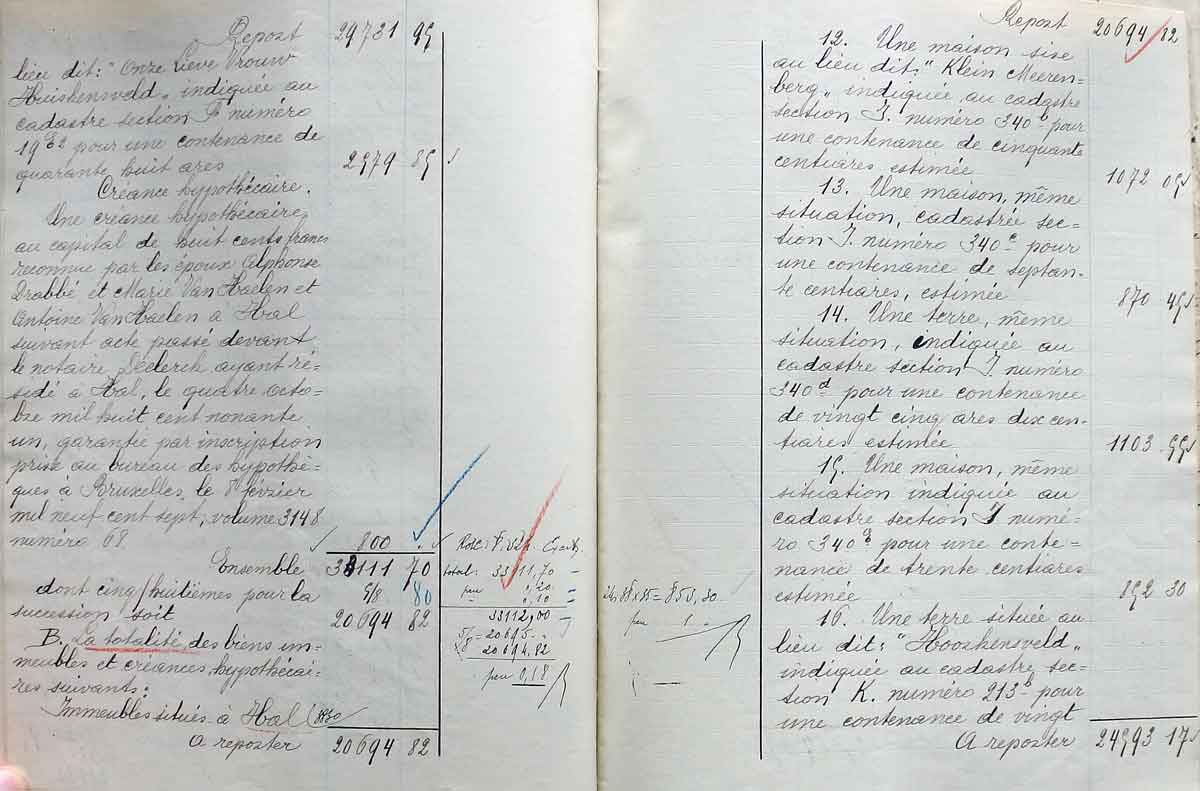 Report 29731 95
lieu dit: "Onze Lieve Vrouw
Huiskensveld" indiquée au
cadastre section F numéro
pour une contenance de
quarante huit ares 2579 85
Créance hypothécaire.
Une créance hypothécaire
au capital de huit cents francs
reconnue par les époux Alphonse
Drabbé et Marie Van Haelen et
Antoine Van Haelen à Hal
suivant acte passé devant
le notaire Declerck ayant ré-
sidé à Hal, le quatre octo-
bre mil huit cent nonante
un, garantie par inscription
prise au bureau des hypothè-
ques à Bruxelles, le février
mil neuf cent sept, volume 3148
numéro 68. 800 .
Ensemble 33111 70
80
dont cinq/huitièmes pour la 5/8
succession soit 20694 82
B. La totalité des biens im-
meubles et créances hypothécai-
res suivants:
Immeubles situés à Hal
A reporter 20694 82
total: 33111,70
33112,00
5/8 = 20695. -
20694.82
peu 0,18
= 853,30
peu 1. -
Report 20694 82
12. Une maison sise
au lieu dit: "Klein Meeren-
berg" indiquée au cadastre
section J. numéro 340b pour
une contenance de cinquante
centiares estimée 1072 05
13. Une maison, même
situation, cadastrée sec=
tion J. numéro 340c pour
une contenance de septan-
te centiares, estimée 870 45
14. Une terre, même
situation, indiquée au
cadastre section J numéro
340d pour une contenance
de vingt cinq ares dix cen-
tiares estimée 1103 55
15. Une maison, même
situation indiquée au
cadastre section J numé-
ro pour une conte=
nance de trente centiares
estimée 852 30
16. Une terre située au
lieu dit: "Hooskensveld"
indiquée au cadastre, sec=
tion K. numéro 213b pour
une contenance de vingt
A reporter 24593 17